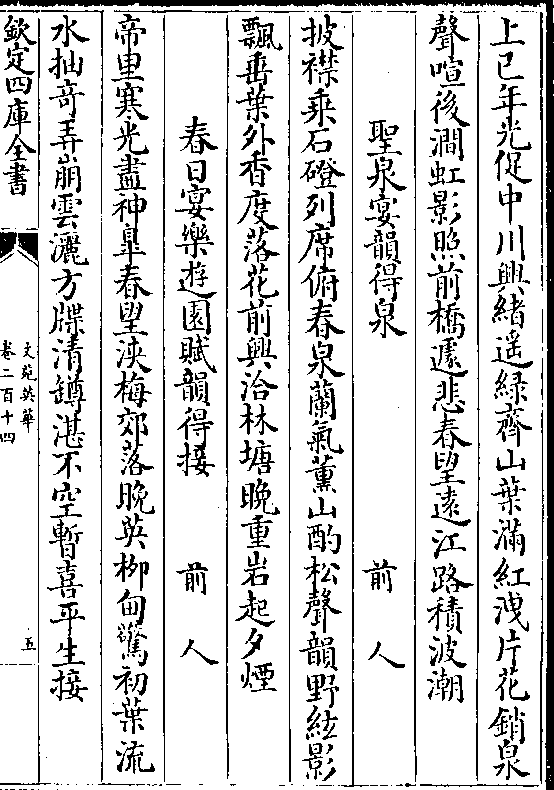 上巳年光促中川興緒遥綠齊山葉滿紅洩片花銷泉
聲喧後澗虹影照前橋遽悲春望遠江路積波潮
聖泉宴韻得泉　前人
披襟乘石磴列席俯春泉蘭氣薰山酌松聲韻野絃影
飄垂葉外香度落花前興洽林塘晚重岩起夕煙
春日宴樂遊園賦韻得接　前人
帝里寒光盡神臯春望浹梅郊落晚英柳甸驚初葉流
水抽奇弄崩雲灑方牒清罇湛不空暫喜平生接
欽定四庫全書
文苑英華
卷二百十四
五